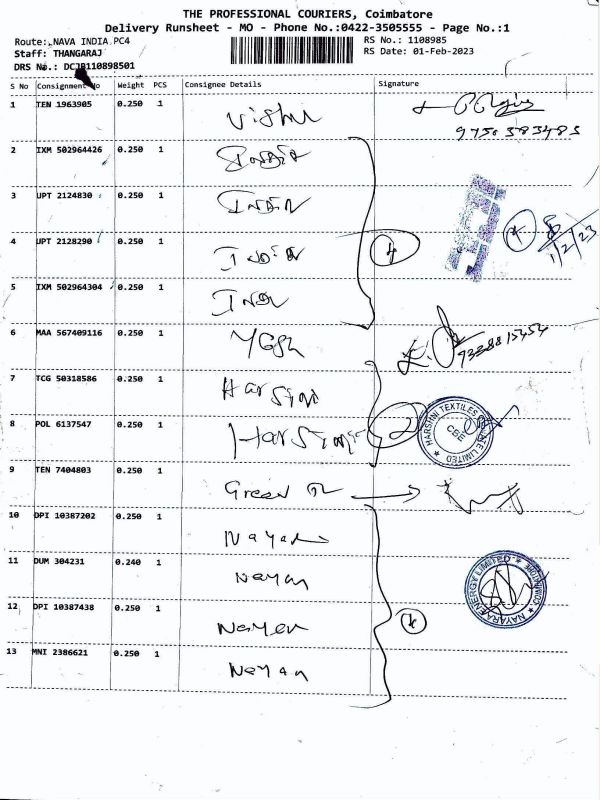 THE PROFESSIONAL COURIERS, Coimbatore
Delivery Runsheet - MO - Phone No.:0422-3505555 - Page No.:1
Route: NAVA INDIA PC4
RS No.: 1108985
Staff: THANGARAJ
RS Date: 01-Feb-2023
DRS No.: DCJB110898501
S No Consignment No Weight PCS Consignee Details Signature
1 TEN 1963905 0.250 1 Vishu
9750383483
2 IXM 502964426 0.250 1 India
3 UPT 2124830 0.250 1 India
4 UPT 2128290 0.250 1 India
4
1/2/23
5 IXM 502964304 0.250 1
6 MAA 567409116 0.250 1
7 TCG 50318586 0.250 1
8 POL 6137547 0.250 1
2
HARSHNI TEXTILES LIMITED
CBE
9 TEN 7404803 0.250 1 Green
10 DPI 10387202 0.250 1
11 DUM 304231 0.240 1 Nayan
NAYARA ENERGY LIMITED COIMBATORE
12 DPI 10387438 0.250 1 Nayen
13 MNI 2386621 0.250 1 Nayan